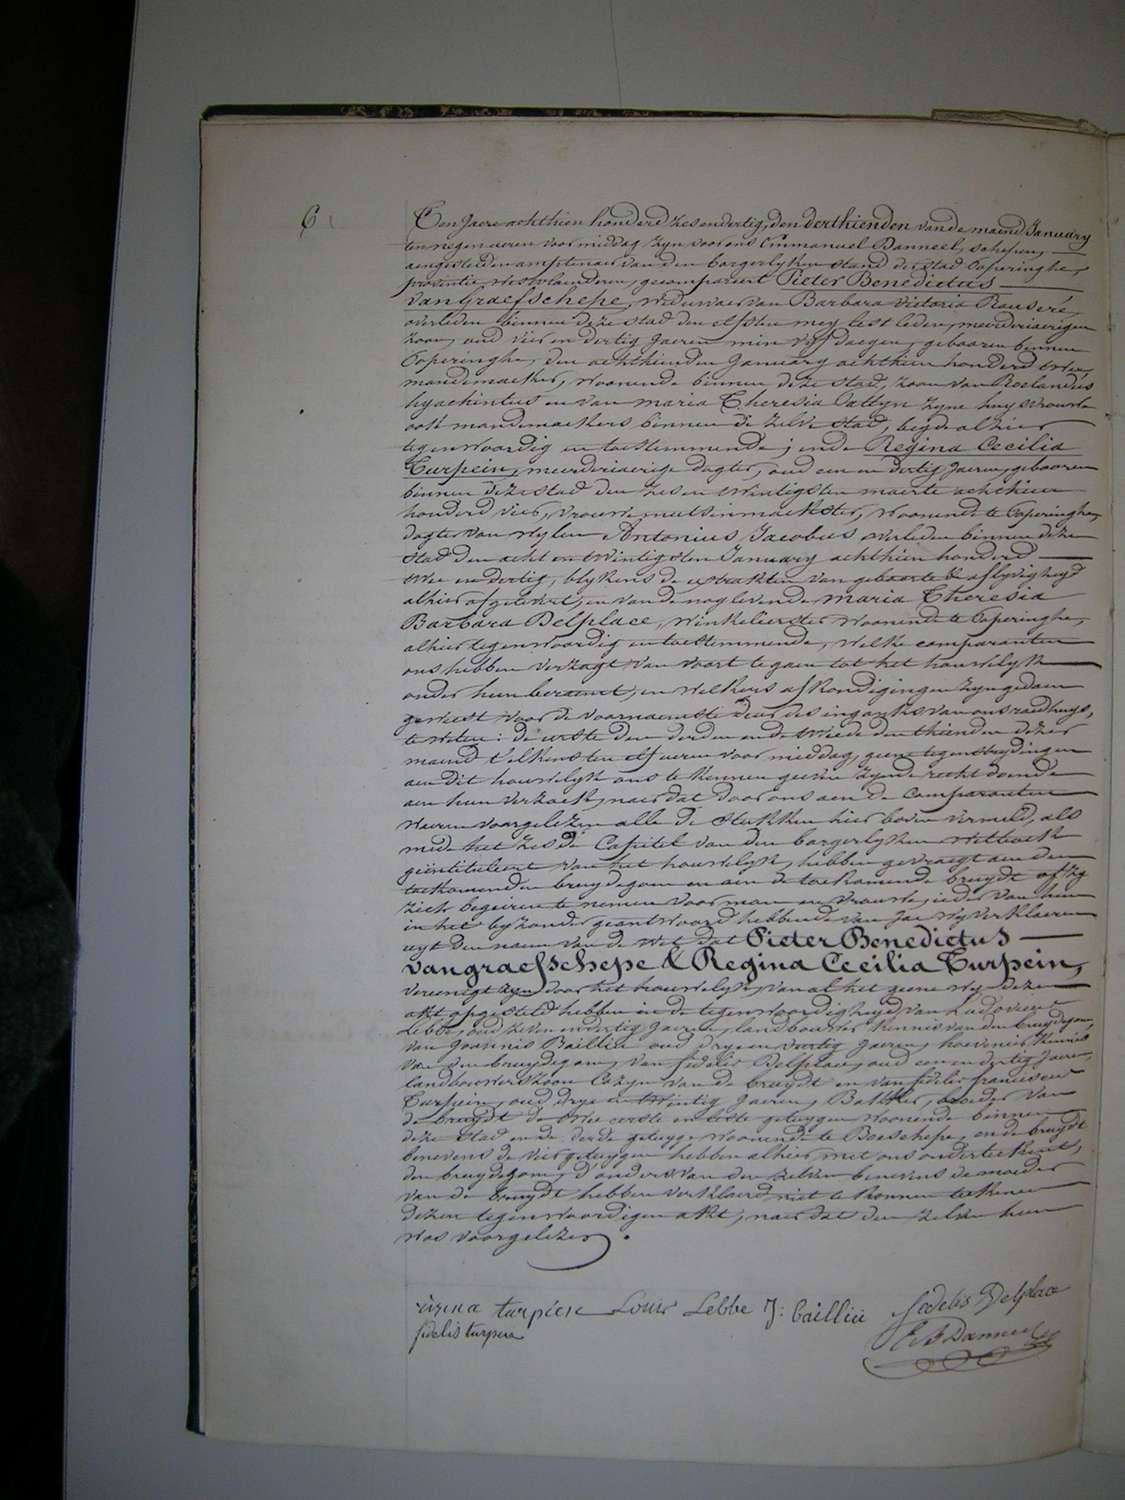 6
Ten Jaere achthien honderd zesendertig, den derthienden van de maend January
ten negen uren voor middag, zyn voor ons Emmanuel Danneel, schepen,
aengestelden amptenaer van den borgerlyken stand der stad Poperinghe,
provintie Westvlaenderen, gecompareert Pieter Benedictus
Vangraefschepe, weduwaer van Barbara Victoria Rauseré,
overleden binnen deze stad den elfsten mey lest leden, meerderiaerigen
zoon, oud vier en dertig jaeren min vyf daegen, gebooren binnen
Poperinghe, den achthienden January achthien honderd twee,
mandemaeker, woonende binnen deze stad, zoon van Roelandus
hyachintus en van maria Theresia Cattyn zyne huysvrouwe
ook mandemaekers binnen de zelve stad, beyde alhier
tegenwoordig en toestemmende; ende Regina Cecilia
Turpein, meerderiaerige dogter, oud een en dertig jaeren, gebooren
binnen deze stad den zes en twintigsten maerte achthien
honderd vier, vrouwemutsenmaekster, woonende te Poperinghe,
dogter van wylen Antonius Jacobus overleden binnen deze
stad den acht en twintigsten January achthien honderd
twee en dertig, blykens de extrakten van geboorte & aflyvigheyd
alhier afgelevert, en van de nog levende maria Theresia
Barbara Delplace, winkelierster woonende te Poperinghe,
alhier tegenwoordig en toestemmende, welke comparanten
ons hebben verzogt van voort te gaen tot het houwelyk
onder hun beraemt, en welkers afkondigingen zyn gedaen
geweest voor de voornaemste deur des ingangs van ons raedhuys,
te weten: de eerste den derden en de tweede den thienden dezer
maend t'elkens ten elf uren voor middag, geene tegenstrydingen
aen dit houwelyk ons te kennen gegeven zynde recht doende
aen hun verzoek, naer dat door ons aen de comparanten
waeren voorgelezen alle de stukken hier boven vermeld, als
mede het zesde Capittel van den borgerlyken wetboek
geintituleert van het houwelyk, hebben gevraegt aen den
toekomenden bruydegom en aen de toekomende bruydt of zy
zich begeiren te nemen voor man en vrouwe, ieder van hun
in het byzonder geantwoord hebbende van Jae, wy verklaeren
uyt den naem van de wet, dat Pieter Benedictus
Vangraefschepe & Regina Cecilia Turpein,
vereenigt zyn door het houwelyk, van al het geene wy deze
akt opgesteld hebben in de tegenwoordigheyd van Ludovicus
Lebbe, oud zeven en dertig jaeren, landbouwer kennis van den bruydegom,
van Joannis Baillie oud drye en veertig jaeren, hovenier kennis
van den bruydegom, van fidelis Delplace, oud een en dertig jaeren,
landbouwerszoon cozyn van de bruydt en van fidelis franciscus
Turpein, oud drye en twintig jaeren, Bakker, broeder van
de bruydt de twee eerste en leste getuygen woonende binnen
deze stad en de derde getuyge woonende te Boeschepe, en de bruydt
benevens de vier getuygen hebben alhier met ons onderteekent,
den bruydegom, d'ouders van den zelven benevens de moeder
van de bruydt hebben verklaerd niet te konnen teekenen
dezen tegenwoordigen akt, naer dat den zelven hun
was voorgelezen.
rigina turpien Louis Lebbe J: baillie fidelis Delplace
fidelis turpein E F Danneel